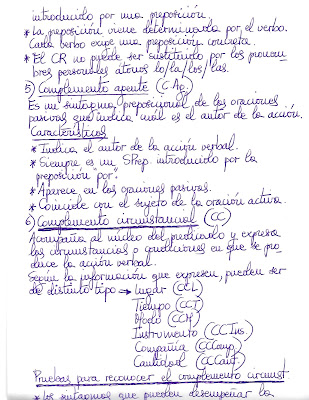 introducido por una preposición.
* La preposición viene determinada por el verbo.
Cada verbo exige una preposición concreta.
* El CR no puede ser sustituido por los pronom-
bres personales átonos lo/la/los/las.
5) Complemento agente (C Ag.)
Es un sintagma preposicional de las oraciones
pasivas que indica cuál es el autor de la acción.
Características
* Indica el autor de la acción verbal.
* Siempre es un SPrep. introducido por la
preposición "por".
* Aparece en las oraciones pasivas.
* Coincide con el sujeto de la oración activa.
6) Complemento circunstancial (CC)
Acompaña al núcleo del predicado y expresa
las circunstancias o condiciones en que se pro-
duce la acción verbal.
Según la información que expresen, pueden ser
de distinto tipo → Lugar (CCL)
Tiempo (CCT)
Modo (CCM)
Instrumento (CCIns.)
Compañía (CComp.)
Cantidad (CCant.)
Pruebas para reconocer el complemento circunst.
* Los sintagmas que pueden desempeñar la